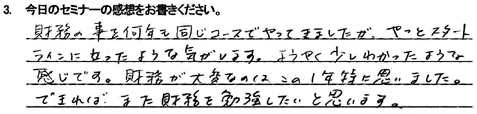 3. 今日のセミナーの感想をお書きください。
財務の事を何年も同じコースでやってきましたが、やっとスタート
ラインに立ったような気がします。ようやく少しわかったような
感じです。財務が大事なのはこの1年特に思いました。
できれば、また財務を勉強したいと思います。